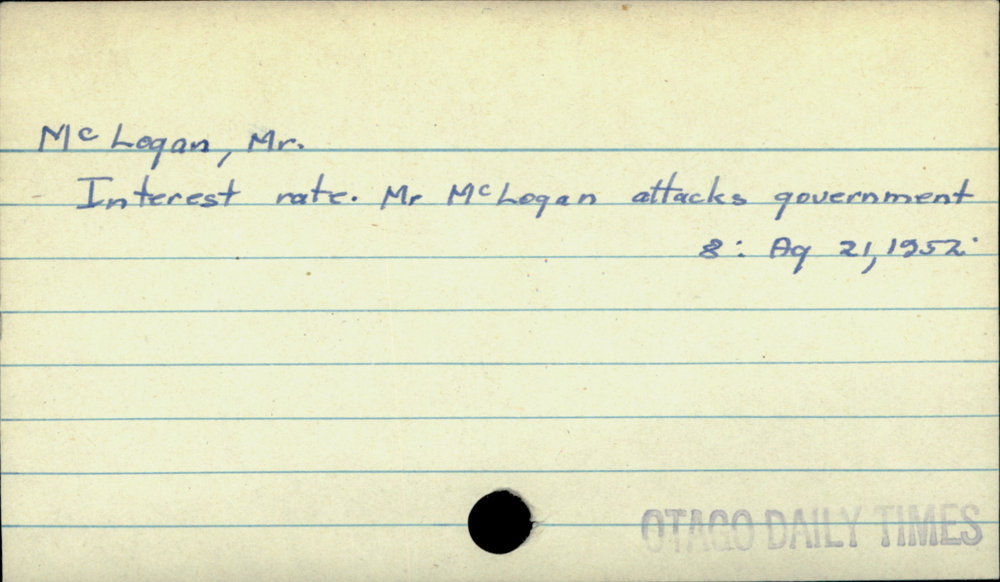 Mc Logan, Mr.
Interest rate. Mr McLogan attacks government
8: Ag 21, 1952.
OTAGO DAILY TIMES